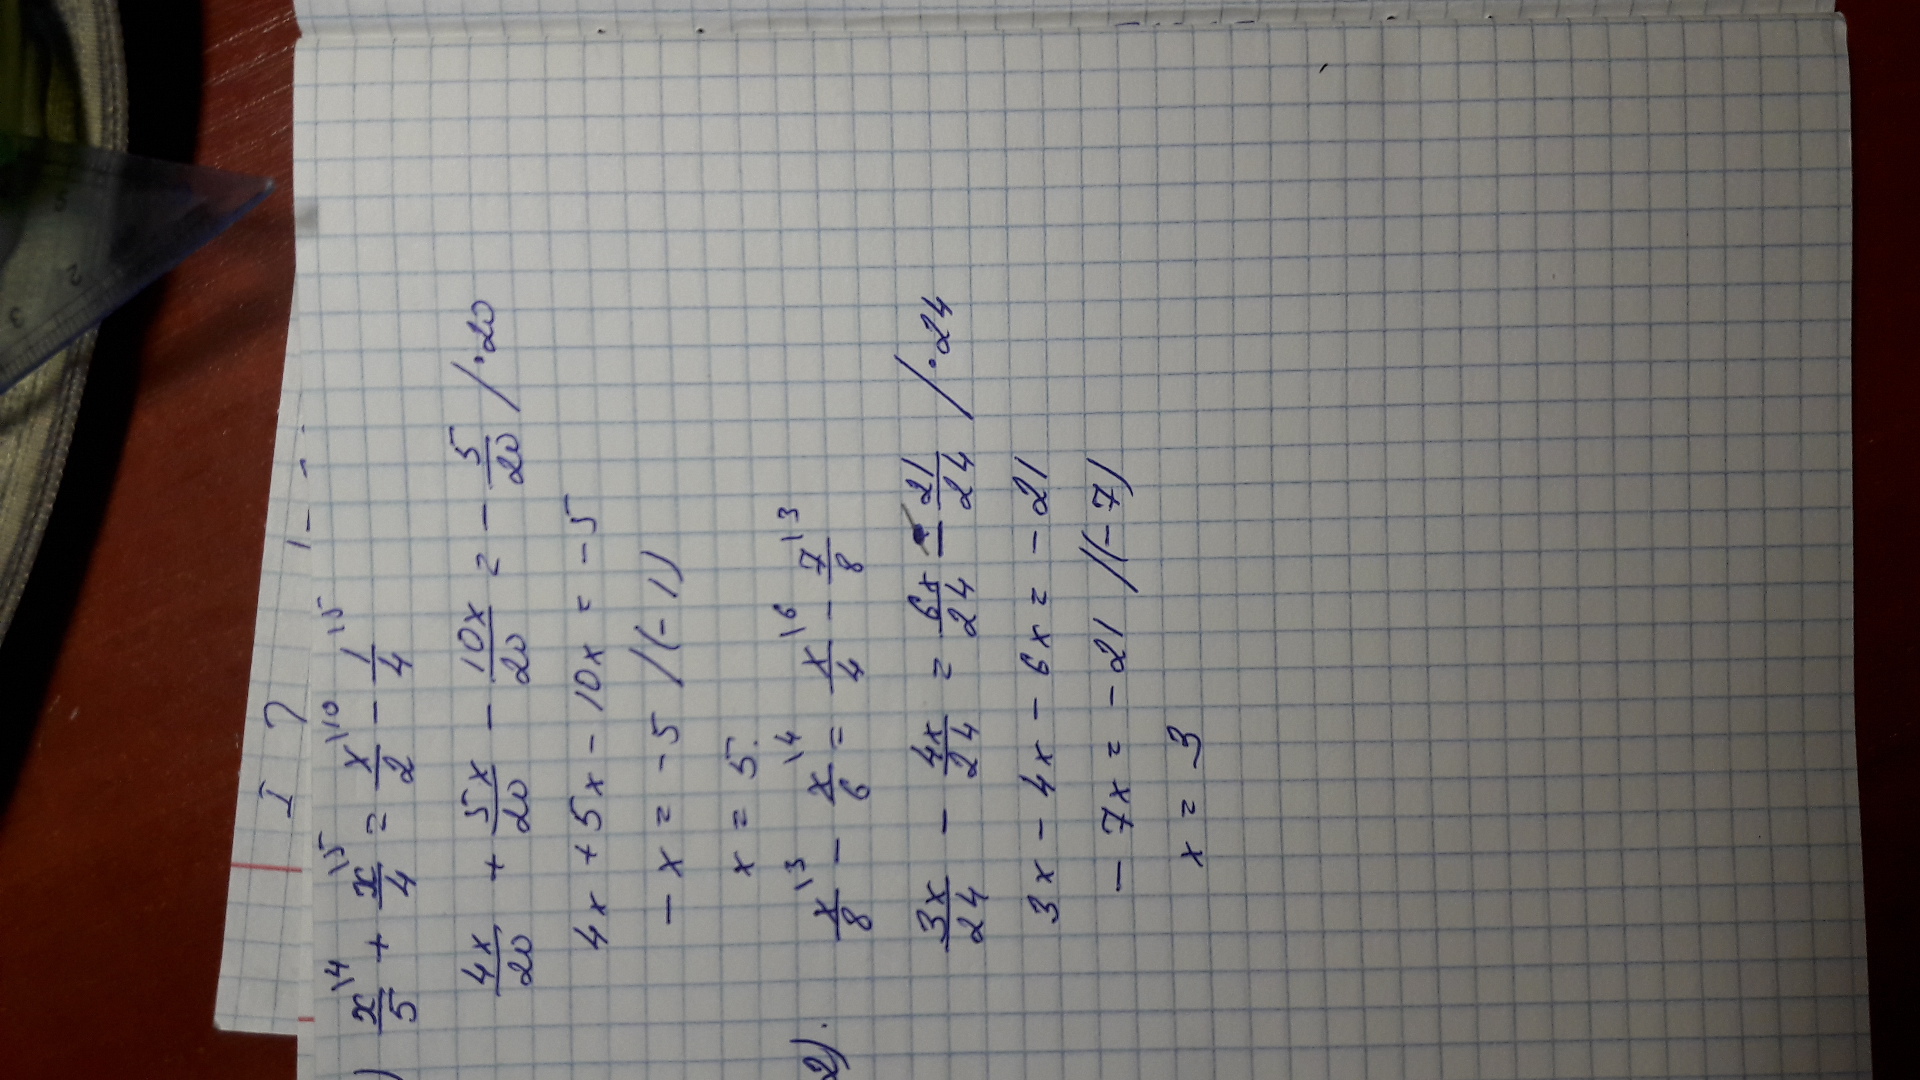 I )
) x/5 \4 + x/4 \5 = x/2 \10 - 1/4 \5
4x/20 + 5x/20 - 10x/20 = - 5/20 / · 20
4x + 5x - 10x = - 5
- x = - 5 /(- 1)
x = 5.
2). x/8 \3 - x/6 \4 = x/4 \6 - 7/8 \3
3x/24 - 4x/24 = 6x/24 - 21/24 / · 24
3x - 4x - 6x = - 21
- 7x = - 21 /(- 7)
x = 3
3
2